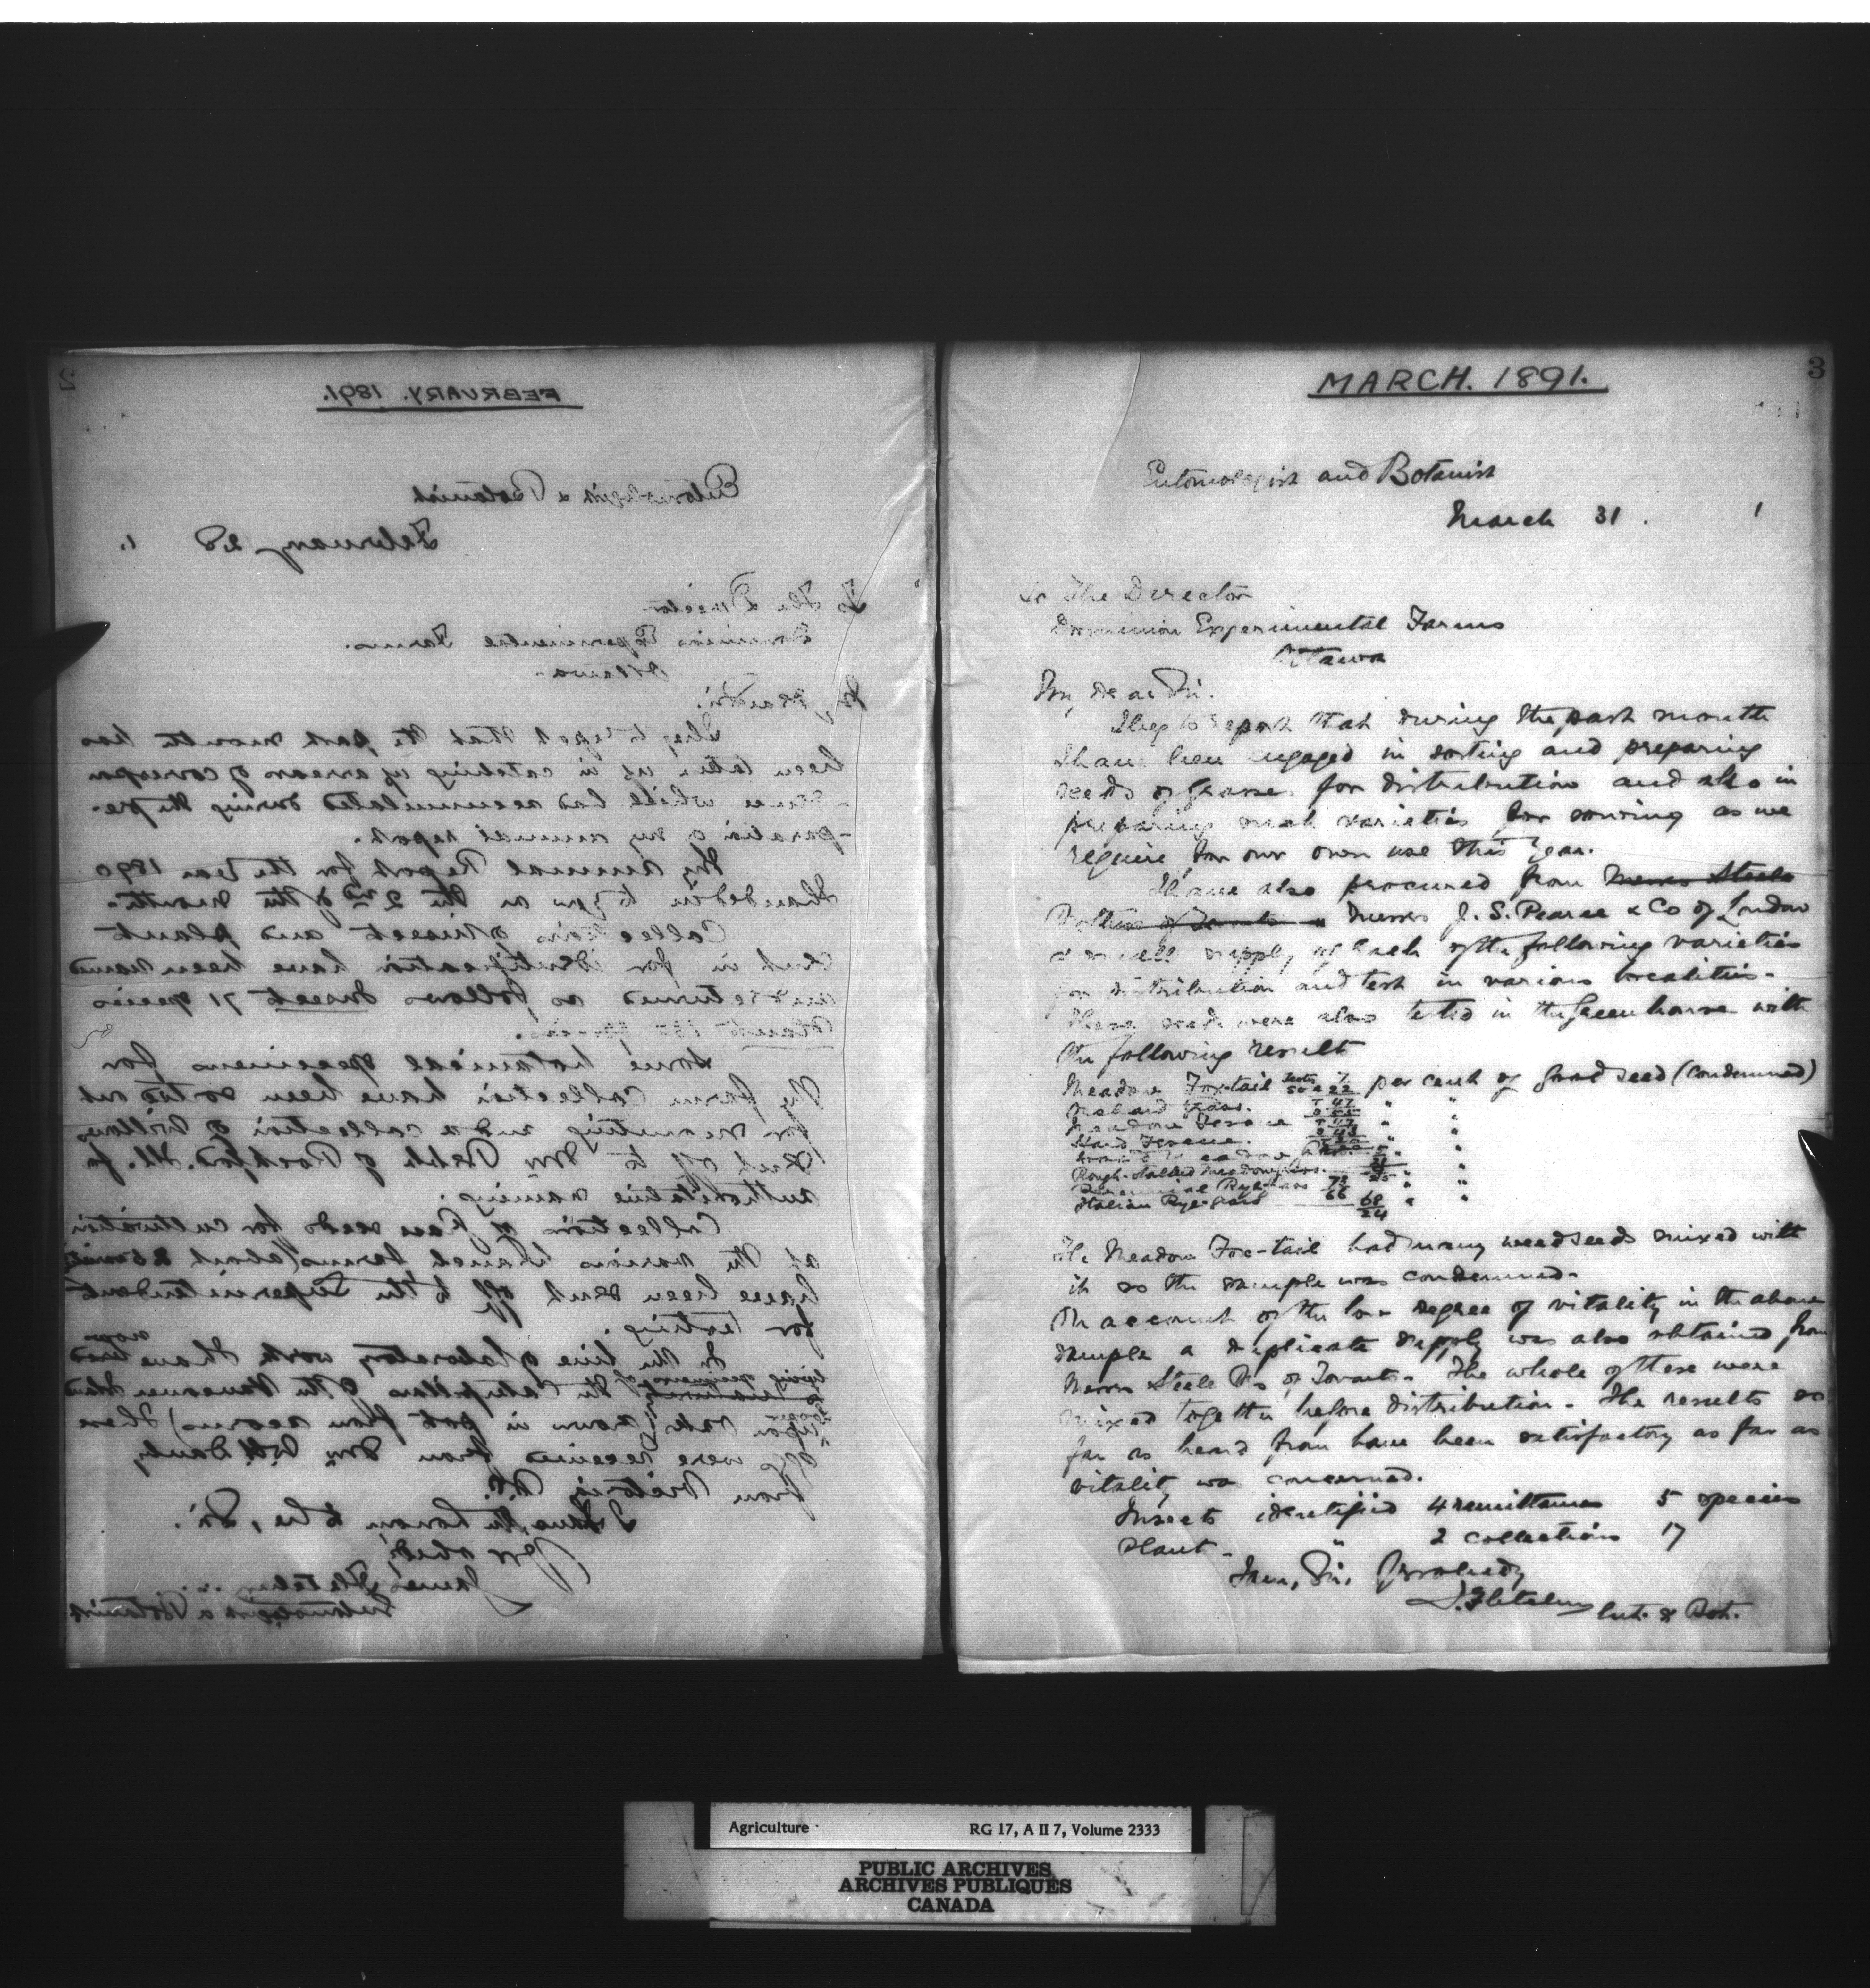 2
FEBRUARY. 1891.
Entomologist & Botanist
February 28 1.
To The Director
Dominion Experimental Farms.
Ottawa.
My dear Sir.
I beg to report that the past month has
been taken up in catching up arrears of correspon
-dence which had accumulated during the pre-
-paration of my annual report.
My annual Report for the Year 1890
I handed in to you on the 2nd of the month.
Collections of insect and plant
sent in for identification have been named
and returned as follows Insect 71 species
Plants species.
Some botanical specimens for
the farm collection have been sorted out
for mounting and a collection of Willows
sent off to Mr Bebb of Rockford. Ill. for
authoritative naming.
Collections of Grass seeds for cultivation
at the various branch farms (about 25
have been sent off to the Superintendent
for testing.
In the line of laboratory work I have now
living specimens of
the Caterpillars of the Vancouver
upon oak grown in pot from acorns) These
eggs were received from Mr W.H. Danby
from Victoria, B.C.
I have the honour to be, Sir.
Yr obedt
James Fletcher
Entomologist & Botanist
3
MARCH. 1891.
Entomologist and Botanist
March 31. 1
To The Director
Dominion Experimental Farms
Ottawa
My dear Sir.
I beg to report that during the past month
I have been engaged in sorting and preparing
seeds of grasses for distribution and also in
preparing such varieties for sowing as we
require for our own use this Year.
I have also procured from Messrs Steele
Messrs J. S. Pearce & Co of London
a small supply of each of the following varieties
for distribution and test in various localities.
These seeds were also tested in the Greenhouse with
the following result
Meadow Fox-tail Tests 50 = 22 per cent of good seed (condemned)
Orchard Grass. 47 " "
Meadow Fescue " "
Hard Fescue. " "
Rough-stalked Meadow " "
Perennial Rye-grass 73 " "
Italian Rye-grass 66 68 24 " "
The Meadow Fox-tail had many weedseeds mixed with
it so the sample was condemned.
On account of the low degree of vitality in the above
sample a duplicate supply was also obtained from
Messrs Steele Bros of Toronto. The whole of these were
mixed together before distribution. The results so
far as heard from have been satisfactory as far as
vitality was concerned.
Insects identified 4 remittances 5 species
Plant - " 2 collections 17
I am, Sir, Yr obedt
J. Fletcher Ent. & Bot.
Agriculture RG 17, A II 7, Volume 2333
PUBLIC ARCHIVES
ARCHIVES PUBLIQUES
CANADA